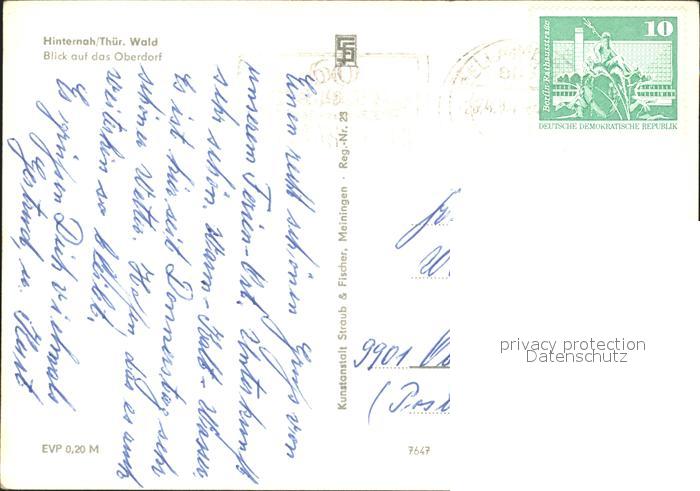 Hinternah/Thür. Wald
Blick auf das Oberdorf
Einen recht schönen Gruß von
unserem Ferien-Ort. Unterkunft
sehr schön. Warm-Kalt-Wasser.
Es ist hier seit Donnerstag sehr
schönes Wetter. Hofen das es auch
weiterhin so bleibt.
Es grüßen Dich vielmals
Gertrud u. Horst
EVP 0,20 M
Kunstanstalt Straub & Fischer, Meiningen · Reg.-Nr. 23
7647
10
Berlin, Rathausstraße
DEUTSCHE DEMOKRATISCHE REPUBLIK
9901
privacy protection
Datenschutz